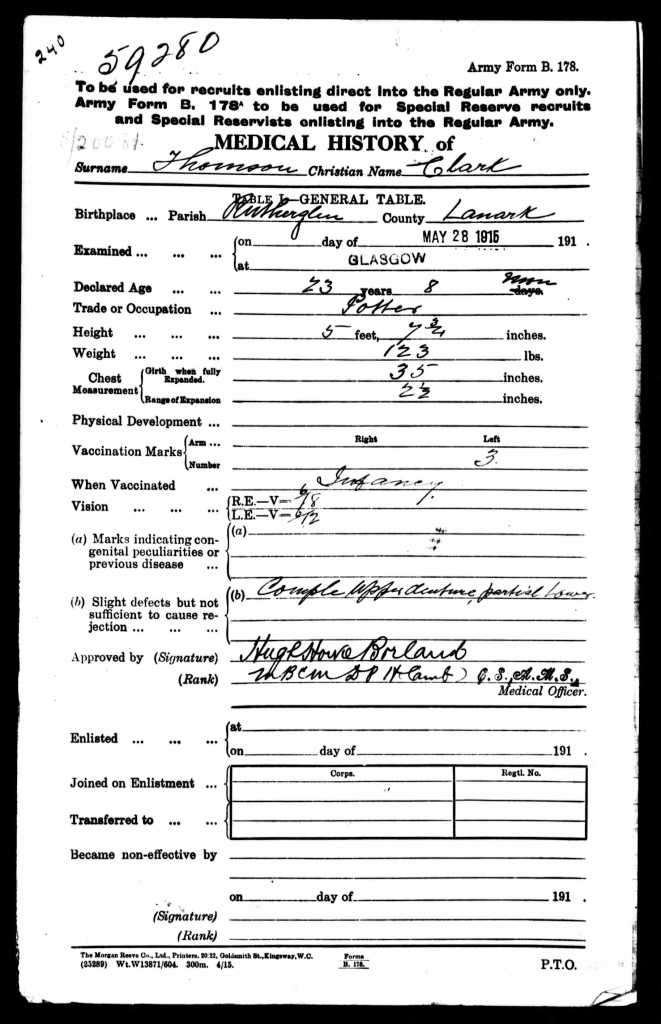 240
59280
Army Form B. 178.
To be used for recruits enlisting direct into the Regular Army only.
Army Form B. 178ᴬ to be used for Special Reserve recruits
and Special Reservists enlisting into the Regular Army.
MEDICAL HISTORY of
Surname Thomson Christian Name Clark
TABLE I.—GENERAL TABLE.
Birthplace ... Parish Rutherglen County Lanark
Examined ... ... ... on day of MAY 28 1915 191 .
at GLASGOW
Declared Age ... ... 23 years 8 days.
Trade or Occupation ... Potter
Height ... ... ... 5 feet, 7 3/4 inches.
Weight ... ... ... 123 lbs.
Chest Measurement Girth when fully Expanded. 35 inches.
Range of Expansion 2 1/2 inches.
Physical Development ...
Vaccination Marks Arm ... Right Left
Number 3
When Vaccinated ... Infancy
Vision ... ... ... R.E.—V= 6/18
L.E.—V= 6/12
(a) Marks indicating con- (a)
genital peculiarities or
previous disease ...
(b) Slight defects but not (b) Comple upper denture, partial lower.
sufficient to cause re-
jection ... ... ...
Approved by (Signature) Hugh Howie Borland
(Rank) MBCM DPH Camb) C.S., A.M.S.,
Medical Officer.
Enlisted ... ... ... at
on day of 191 .
Corps. Regtl. No.
Joined on Enlistment ...
Transferred to ... ...
Became non-effective by
on day of 191 .
(Signature)
(Rank)
The Morgan Reeve Co., Ltd., Printers, 20/22, Goldsmith St., Kingsway, W.C.
(25289) Wt.W13871/604. 300m. 4/15.
Forms
B. 178.
P.T.O.